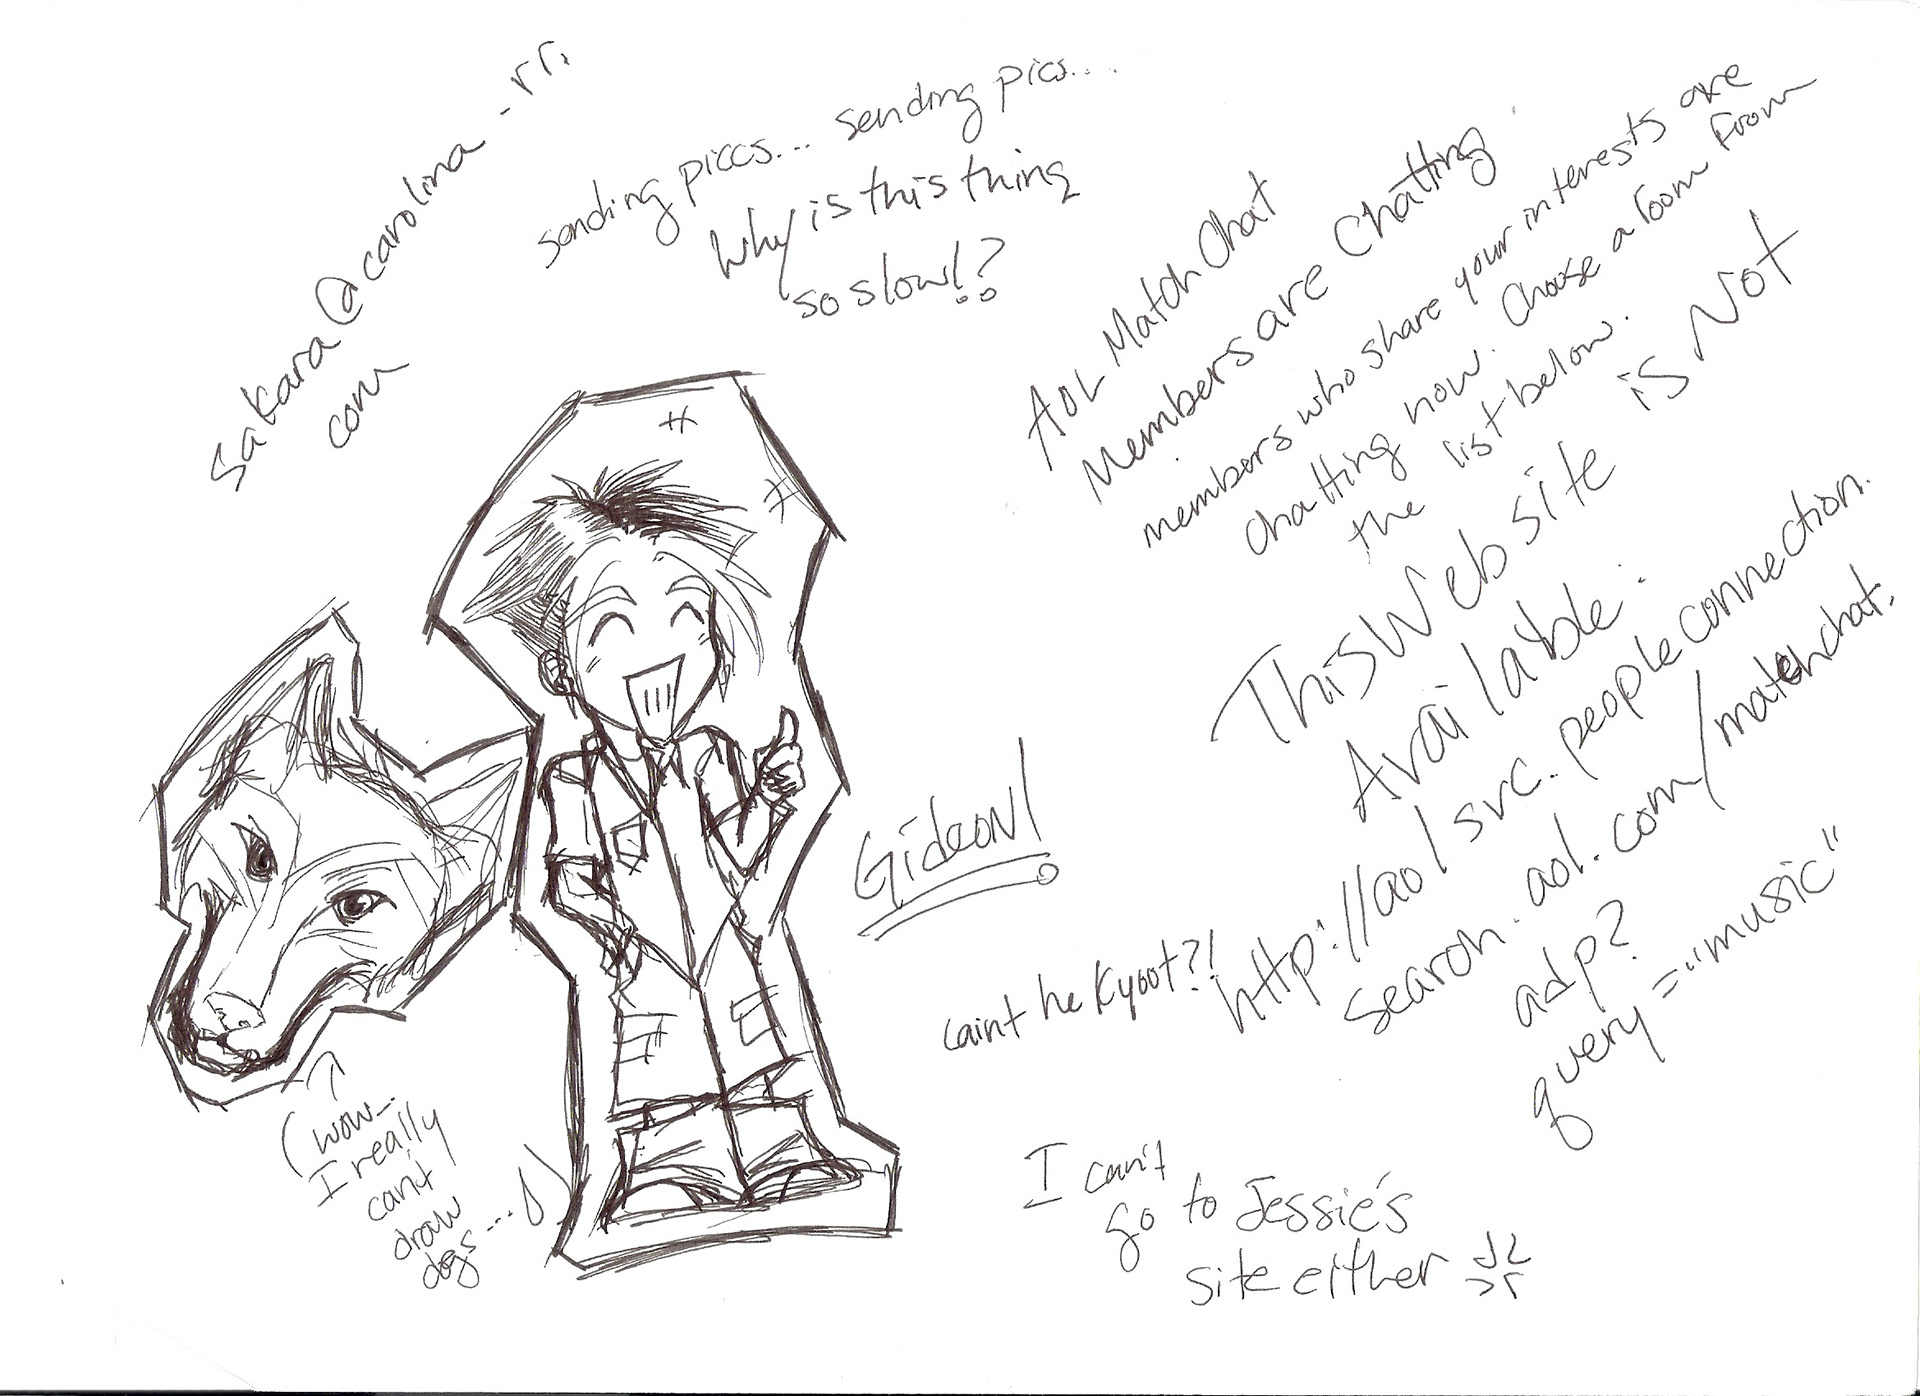 sakara@carolina-rr.
com
sending piccs... sending pics....
Why is this thing
so slow!?
AOL Match Chat
Members are Chatting
members who share your interests are
chatting now. Choose a room from
the list below.
This Web site is Not
Available:
http://aolsvc.people connection.
search.aol.com/matchchat.
adp?
query="music"
Gideon!
caint he kyoot?!
(wow...
I really
can't
draw
dogs...
I can't
go to Jessie's
site either